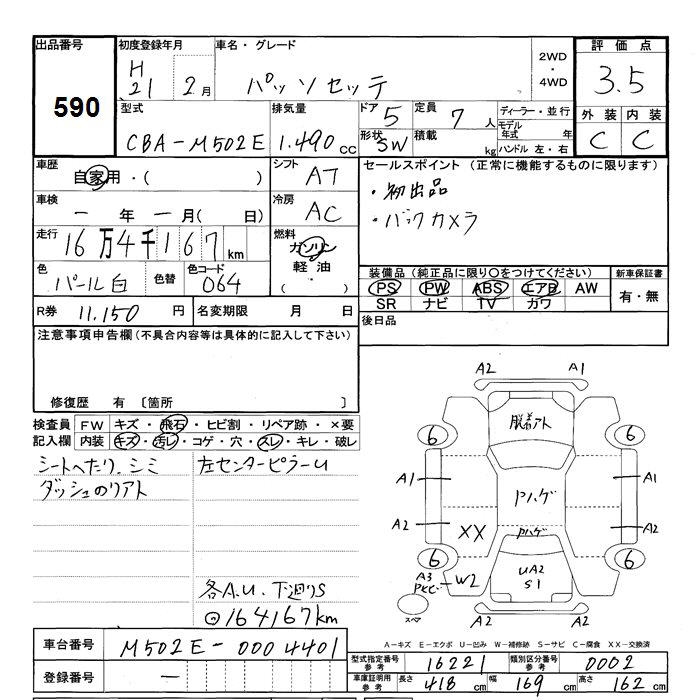 出品番号
590
初度登録年月
H21 2月
車名・グレード
パッソセッテ
2WD・4WD
評価点
3.5
型式
CBA-M502E
排気量
1.490cc
ドア
5
定員
7人
形状
SW
積載
kg
ディーラー・並行
モデル年式 年
ハンドル 左・右
外装 内装
C C
車歴
自家用・( )
シフト
AT
車検
一年一月( 日)
冷房
AC
走行
16万4千167km
燃料
ガソリン
軽油
( )
色
パール白
色替
色コード
064
R券 11.150円
名変期限 月 日
セールスポイント (正常に機能するものに限ります)
・初出品
・バックカメラ
装備品(純正品に限り○をつけてください)
PS PW ABS エアB AW
SR ナビ TV カワ
新車保証書
有・無
後日品
注意事項申告欄(不具合内容等は具体的に記入して下さい)
修復歴 有 〔箇所 〕
検査員記入欄
FW キズ・飛石・ヒビ割・リペア跡・×要
内装 キズ・汚レ・コゲ・穴・スレ・キレ・破レ
シートへたり、シミ
ダッシュのリアト
左センターピラーU
各A.U.下廻りS
⊙164167km
A2 A1
脱着アト
6 6
A1 A1
Pハゲ
A2 A2
XX Pハゲ
6 6
UA2
S1
A3
W2
スペア
A2 A2
A-キズ E-エクボ U-凹み W-補修跡 S-サビ C-腐食 XX-交換済
車台番号
M502E-0004401
登録番号
一
型式指定番号 参考
16221
類別区分番号 参考
0002
車庫証明用 参考
長さ 418cm 幅 169cm 高さ 162cm